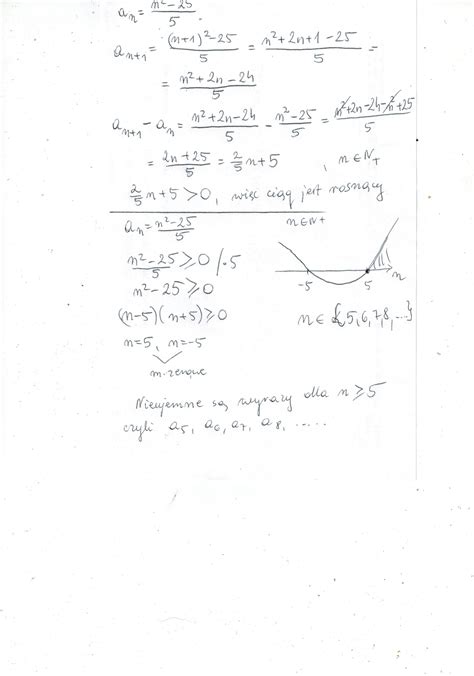 aₙ = (n²-25)/5.
aₙ₊₁ = ((n+1)²-25)/5 = (n²+2n+1-25)/5 =
= (n²+2n-24)/5
aₙ₊₁ - aₙ = (n²+2n-24)/5 - (n²-25)/5 = (n²+2n-24-n²+25)/5
= (2n+25)/5 = 2/5 n+5 , n∈N₊
2/5 n+5 >0, więc ciąg jest rosnący
aₙ = (n²-25)/5 n∈N₊
(n²-25)/5 ⩾0 /·5
n²-25⩾0
-5 5 n
(n-5)(n+5)⩾0
n∈{5,6,7,8,...}
n=5, n=-5
m. zerowe
Nieujemne są wyrazy dla n⩾5
czyli a₅, a₆, a₇, a₈, .....